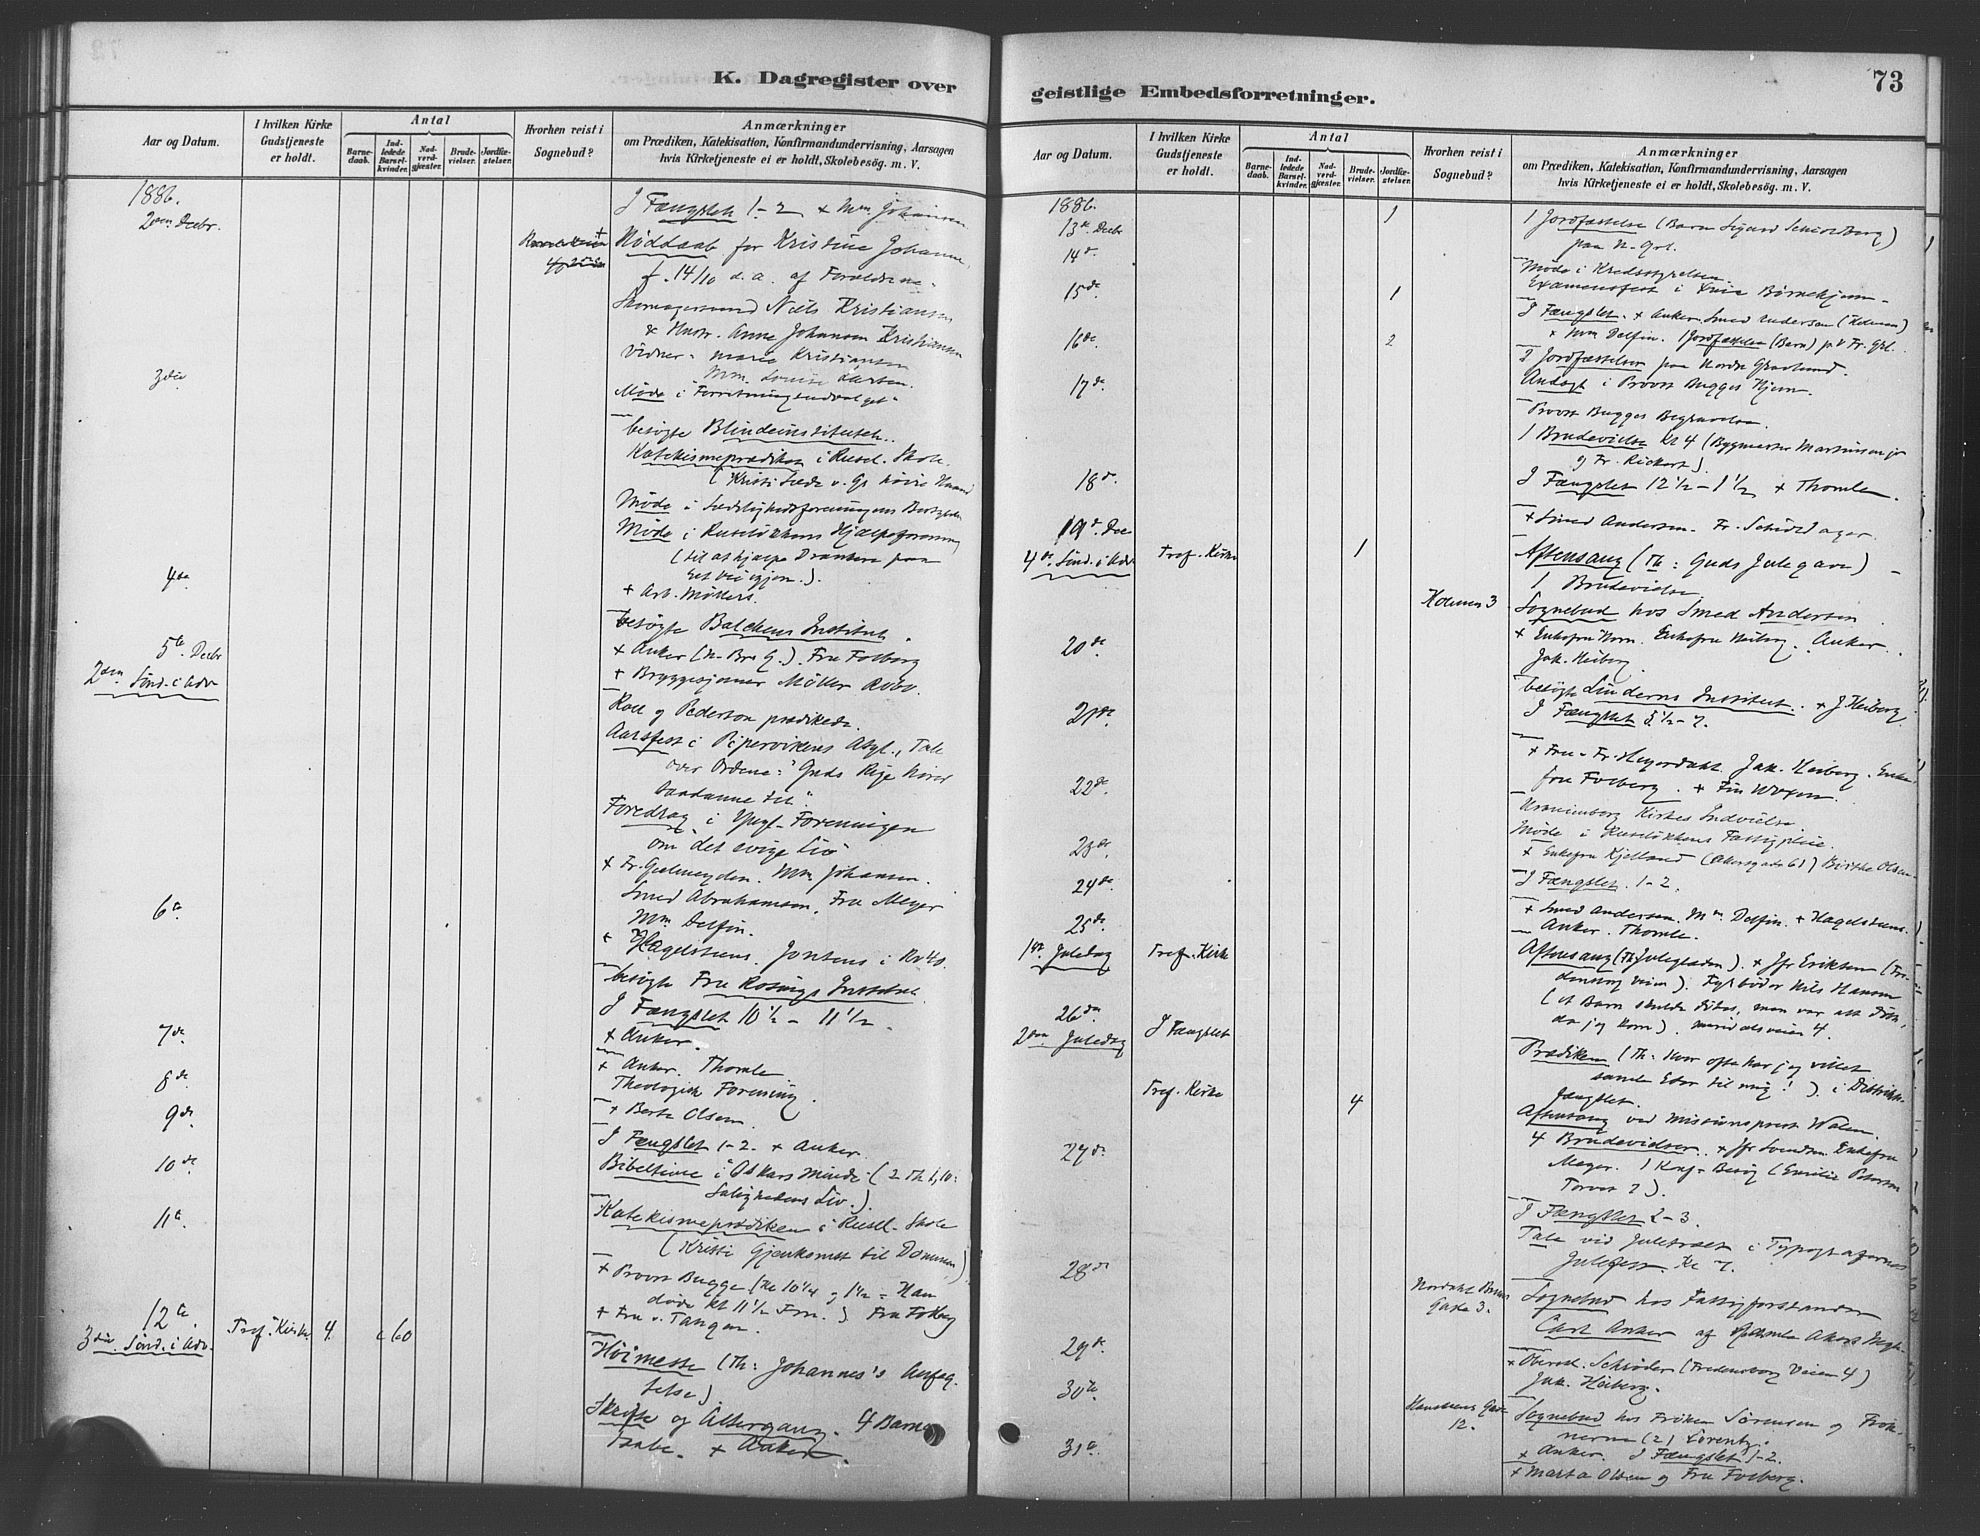 K. Dagregister over
Aar og Datum.
I hvilken Kirke Gudstjeneste er holdt.
Antal
Barnedaab.
Indledede Barselkvinder.
Nadverdgjæster.
Brudevielser.
Jordfæstelser.
Hvorhen reist i Sognebud?
Anmærkninger
om Prædiken, Katekisation, Konfirmandundervisning, Aarsagen
hvis Kirketjeneste ei er holdt, Skolebesög. m. V.
1886.
2den Decbr.
I Fængslet 1-2 + Mm Johansen
Nöddaab for Kristine Johanne,
f. 14/10 d. a. af Forældrene
Skomagersvend Niels Kristiansen
& Hustr. Anne Johansen Kristiansen
Vidner - Marie Kristiansen
Mm. Louise Larsen.
3die
Møde i Forretningsudvalget
besøgte Blindeinstitutet.
Katekismeprædiken i Rusel. Skole
(Kristi Sæde v. Gs høire Haand
Møde i Sædelighedsforeningens Bestyrelse
Møde i Ruseløkkens Hjælpeforening
(til at hjælpe Drankere paa
ret Vei igjen.).
4de
+ Arb. Møllers.
besøgte Balchens Institut.
5te Decbr
2den Sönd. i Adv
+ Anker (N. Br. G.). Fru Folberg
+ Bryggesjouer Møller
Koll og Pederson prædikede.
Aarsfest i Pipervikens Asyl., Tale
over Ordene: "Guds Rige hører
saadanne til".
Foredrag i Yngl-Foreningen
om "det evige Liv"
+ Fr. Gulmeyden. Mm Johansen.
Smed Abrahamsen. Fru Meyer
6te
Mm. Delfin.
+ Hagelsteens. Jontens i
besøgte Fru Rosings Institut.
I Fængslet 10½ - 11½.
7de
+ Anker.
+ Anker. Thomle
8de
Theologisk Forening.
9de
+ Berte Olsen
I Fængslet 1-2. + Anker.
10de
Bibeltime i Oskars Minde (2 Th 1,10:
Salighedens Liv.)
11te
Katekismeprædiken i Rusel. Skole
(Kristi Gjenkomst til Dommen)
+ Provst Bugge (Kl 10¼ og 1½ = Han
døde Kl 11½ Fm.) Fru Folberg
12te
+ Fru v. Tangen.
3die Sönd. i Adv.
Tref. Kirke
4.
60
Høimesse (Th: Johannes's Anfægtelse)
Skrifte og Altergang. 4 Barnedaabe. + Anker.
geistlige Embedsforretninger.
73
Aar og Datum.
I hvilken Kirke Gudstjeneste er holdt.
Antal
Barnedaab.
Indledede Barselkvinder.
Nadverdgjæster.
Brudevielser.
Jordfæstelser.
Hvorhen reist i Sognebud?
Anmærkninger
om Prædiken, Katekisation, Konfirmandundervisning, Aarsagen
hvis Kirketjeneste ei er holdt, Skolebesög. m. V.
1886.
13de Decbr
1
1 Jordfæstelse (Barn Sigurd Schiøldborg)
paa N. Grl.
14de
Møde i Kredsstyrelsen.
15de
1
Examensfest i Børnehjem
I Fængslet. + Anker. Smed Andersen (Holmen)
+ Mm Delfin. 1 Jordfæstelse (Barn) p. V Fr. Grl.
16de
2
2 Jordfæstelser paa Nordre Gravlund.
17de
Andagt i Provst Bugges Hjem.
Provst Bugges Begravelse.
1 Brudevielse Kl 4 (Bygmester Martinsen jr
og Fr. Rickert).
18de
I Fængslet 12½-1½ + Thomle.
19de Dec
+ Smed Andersen. Fr. Schiøldager.
4de Sönd. i Adv
Tref. Kirke
1
Aftensang (Th: Guds Julegave)
1 Brudevielse
Holmen 3
Sognebud hos Smed Andersen
20de
+ Enkefru Horn. Enkefru Heiberg. Anker.
Jak. Heiberg.
21de
besøgte Linderns Institut. + J Heiberg.
I Fængslet 5½-7.
22de
+ Fru. Fr. Heyerdahl. Jak. Heiberg. Enkefru Folberg. +
Uranienborg Kirkes Indvielse
Møde i Ruseløkkens Fattigpleie.
23de
+ Enkefru Kjelland (Akersgade 61) Birthe Olsen
24de
I Fængslet. 1-2.
25de
+ Smed Andersen. Mm Delfin. + Hagelsteens.
Anker. Thomle.
1ste Juledag
Tref. Kirke
Aftensang (Th Juleglæden). + Jfr Eriksen (Fredensborg veien). Fyrbøder Nils Hansen
(et Barn skulde døbes, men var alt dødt,
da jeg kom). Maridalsveien 4.
26de
2den Juledag
I Fængslet
Prædiken (Th: Hvor ofte har jeg villet
samle Eder til mig!) i Distriktsfængslet.
Tref. Kirke
4
Aftensang ved Missionsprest Walen.
4 Brudevielser. + Jfr Svendsen. Enkefru
Meyer. 1 Konf. Besøg (Emilie Petersen
Torvet 7).
27de
I Fængslet 2-3.
Tale ved Juletræet i Typografernes
Julefest. Kl 7.
28de
Nordahl Bruns Gade 3.
Sognebud hos Fattigforstander
Carl Anker
29de
+ Oberstl. Schrøder (Fredensborg Veien 4)
Jak. Heiberg.
30te
Hausmans Gade 12.
Sognebud hos Frøken Sørensen og Frøknerne (2) Lorentz.
+ Anker. I Fængslet 1-2.
31te
+ Marta Olsen og Fru Folberg.